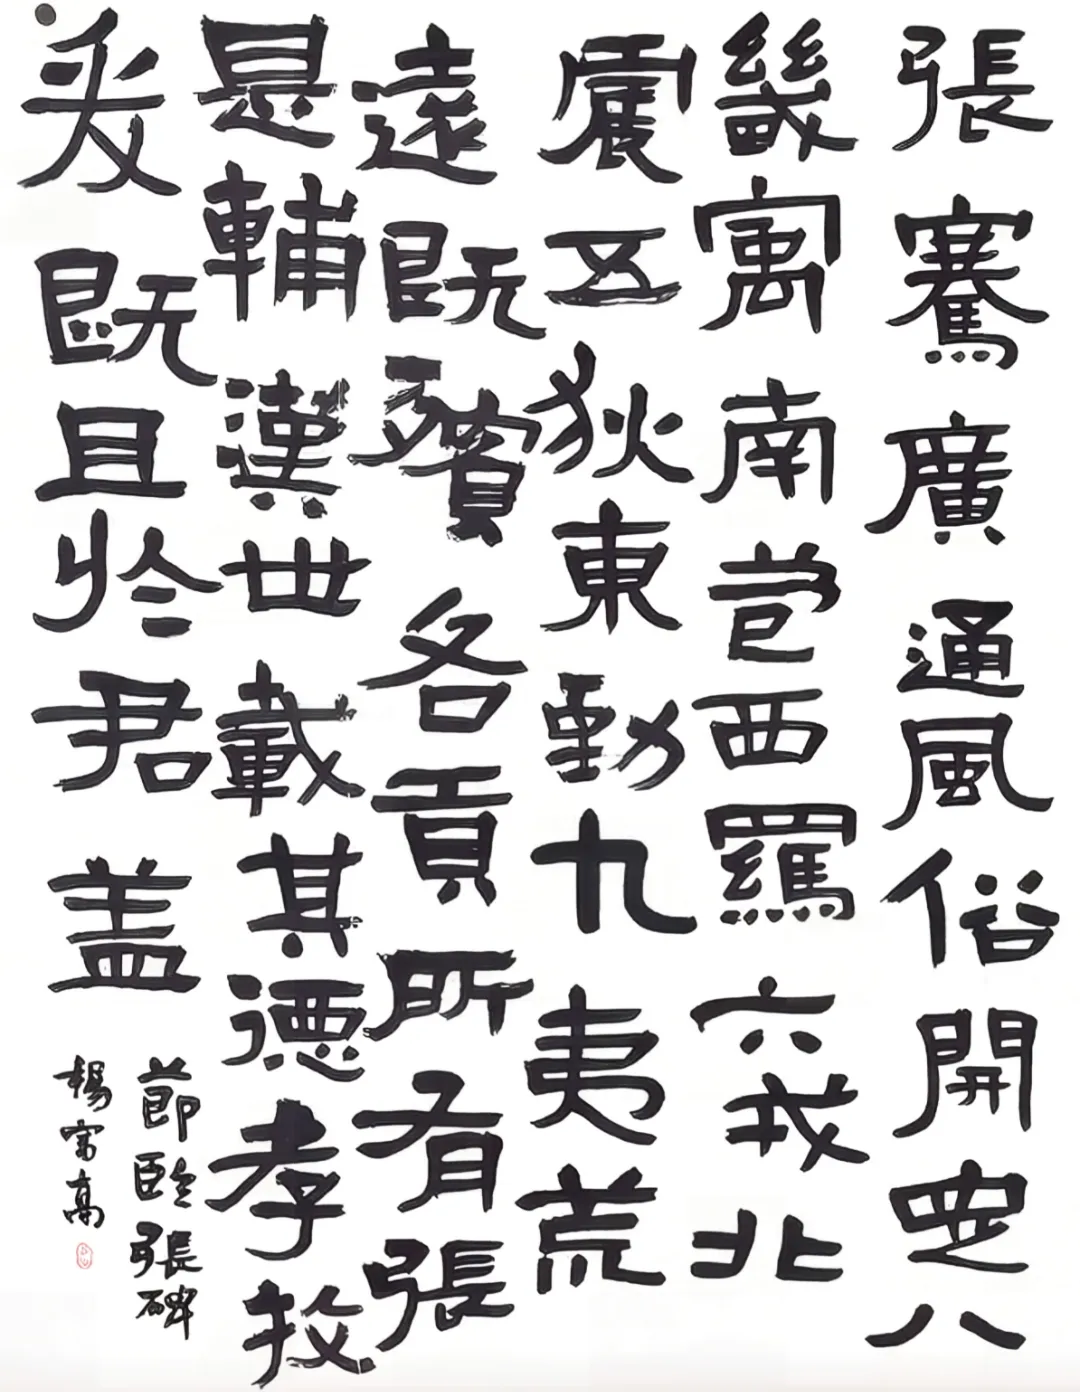 張騫廣通風俗開定八
畿㝢南苞西羈六戎北
震五狄東勤九夷荒
遠既殯各貢所有張
是輔漢世載其德孝
爰既且於君盖
節臨張碑
楊富高